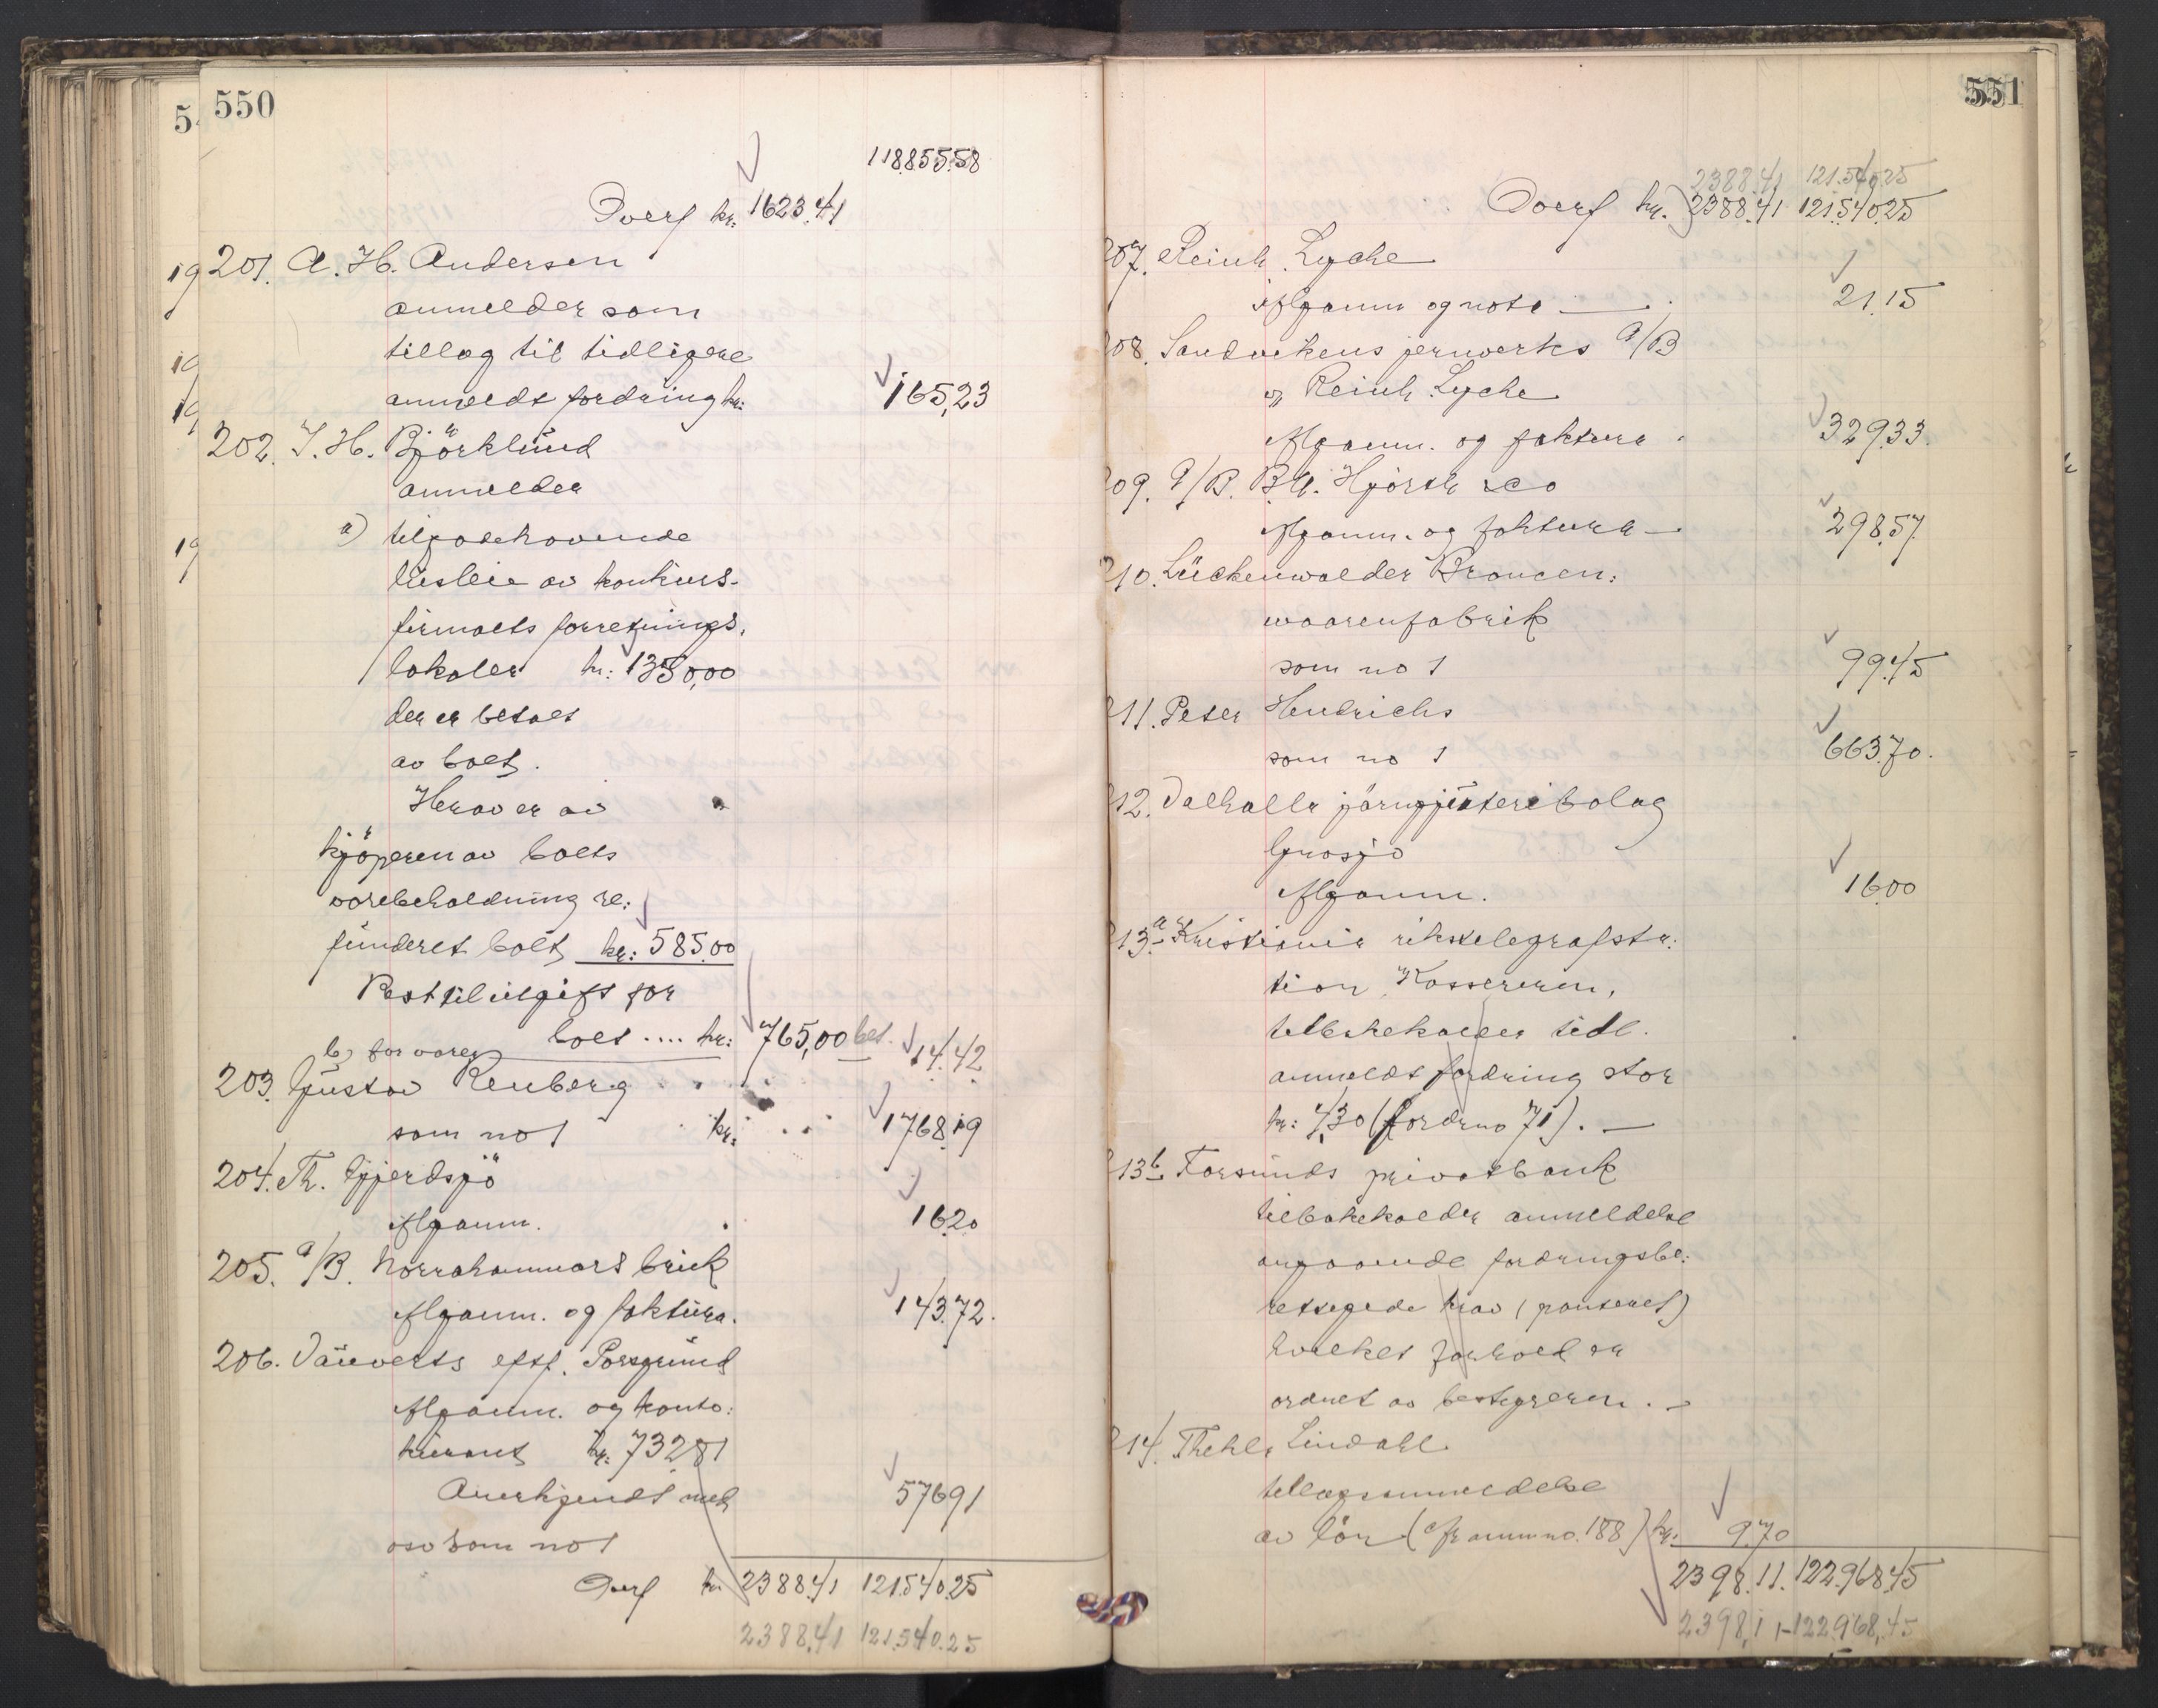 550
118855.58
Overf kr: 1623.41
201. A. H. Andersen
anmelder som
tillæg til tidligere
anmeldt fordring kr: 165,23
202. J. H. Björklund
anmelder
a) tilgodehavende
husleie av konkurs-
firmaets forretnings-
lokaler kr: 1350,00
der er betalt
av boet.
Herav er av
kjøperen av boets
varebeholdning re-
funderet boet kr: 585.00
Rest til utgift for
boet .... kr: 765,00 bet.
b) for varer 14.42
203. Gustav Renberg
som no 1 kr: 1768.19
204. Th. Gjerdsjö
Mganm. 16.20
205. A/B. Norrahammars bruk
Mganm. og faktura. 143.72.
206. Dauverts eftf. Porsgrund
Mganm. og konto-
kurant kr. 732.81
Anerkjendt med 576.91
som no 1
Overf kr 2388.41 121.540.25
2388.41 121.540.25
551
2388.41 121.540.25
Overf kr. 2388.41 121.540.25
207. Reinh. Lyche
Mganm og nota 21.15
208. Sandvikens jernverks A/B
v/ Reinh. Lyche
Mganm. og faktura 329.33.
209. A/B. B. A. Hjorth & Co
Mganm. og faktura 298.57
210. Lückenwalder Broncen-
waarenfabrik
som no 1 99.45
211. Peter Hendrichs
som no 1 663.70.
212. Valhalla järngjuteribolag
Gnosjö
Mganm. 16.00
213a Kristiania rikstelegrafsta-
tion, Kassereren,
tilbakekalder tidl.
anmeldt fordring stor
kr: 4,30 (fordr no 71).
213b Farsunds privatbank
tilbakekalder anmeldelse
angaaende fordringsbe-
rettigede krav (panteret)
hvilket forhold er
ordnet av bestyreren.
214. Thekla Lindahl
tillægsanmeldelse
av løn (cfr anm no. 188) kr. 9.70
2398.11. 122.968.45
2398,11 122.968,45